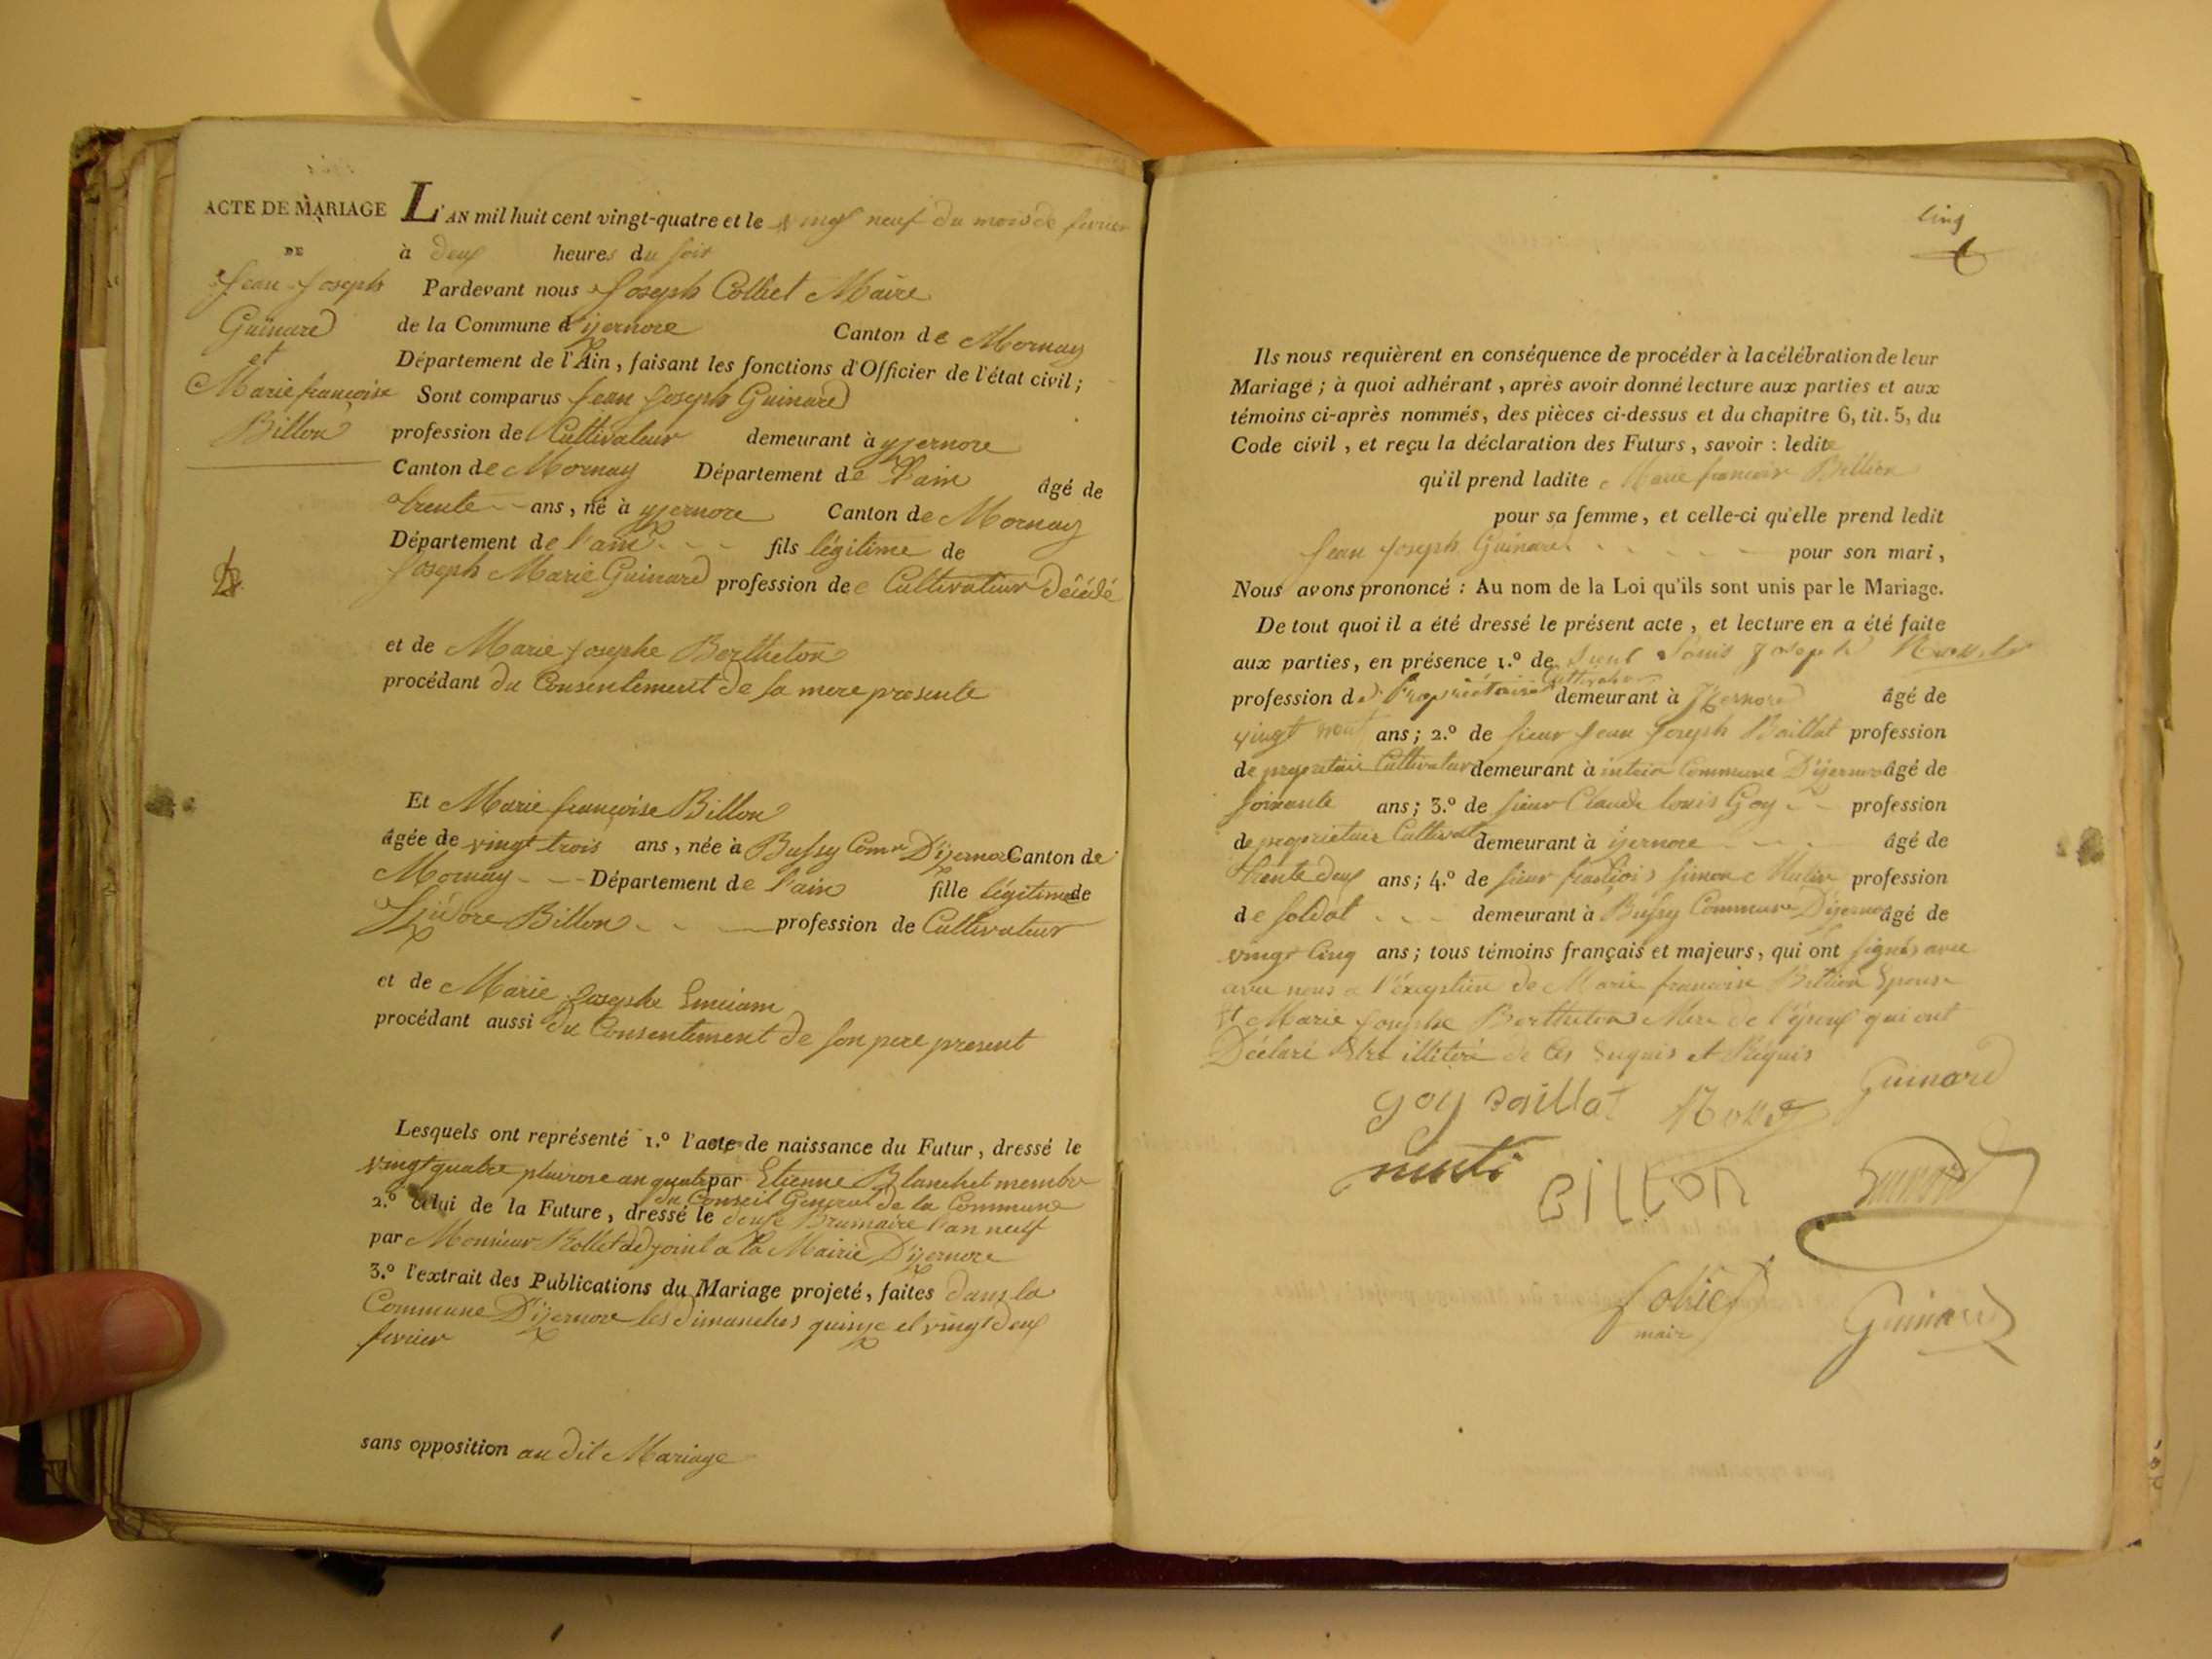 ACTE DE MARIAGE
DE
Jean Joseph
Guinard
et
Marie françoise
Billon
L'AN mil huit cent vingt-quatre et le vingt neuf du mois de fevrier
à deux heures du soir
Pardevant nous Joseph Colliet Maire
de la Commune d'yzernore Canton de Mornay
Département de l'Ain, faisant les fonctions d'Officier de l'état civil;
Sont comparus Jean Joseph Guinard
profession de Cultivateur demeurant à yzernore
Canton de Mornay Département de l'ain âgé de
trente ans, né à yzernore Canton de Mornay
Département de l'ain fils légitime de
Joseph Marie Guinard profession de Cultivateur décédé
et de Marie Josephe Bertheton
procédant du Consentement de sa mere presente
Et Marie françoise Billon
âgée de vingt trois ans, née à Bussy Com.ne D'izernore Canton de
Mornay Département de l'ain fille légitime de
Izidore Billon profession de Cultivateur
et de Marie Josephe
procédant aussi du Consentement de son pere present
Lesquels ont représenté 1.º l'acte de naissance du Futur, dressé le
vingt quatre pluviose an quatre par Etienne Blanchet membre
du Conseil General de la Commune
2.º celui de la Future, dressé le douze Brumaire l'an neuf
par Monsieur Rollet adjoint a la Mairie D'izernore
3.º l'extrait des Publications du Mariage projeté, faites dans la
Commune D'izernore les dimanches quinze et vingt deux
fevrier
sans opposition au dit Mariage
cinq
Ils nous requièrent en conséquence de procéder à la célébration de leur
Mariage; à quoi adhérant, après avoir donné lecture aux parties et aux
témoins ci-après nommés, des pièces ci-dessus et du chapitre 6, tit. 5, du
Code civil, et reçu la déclaration des Futurs, savoir: ledit
qu'il prend ladite Marie francoise Billion
pour sa femme, et celle-ci qu'elle prend ledit
Jean Joseph Guinard pour son mari,
Nous avons prononcé: Au nom de la Loi qu'ils sont unis par le Mariage.
De tout quoi il a été dressé le présent acte, et lecture en a été faite
aux parties, en présence 1.º de Sieur Louis Joseph
Cultivateur
profession de Propriétaire demeurant à Izernore âgé de
vingt neuf ans; 2.º de sieur Jean Joseph Baillat profession
de propriétaire Cultivateur demeurant à Commune D'izernore âgé de
soixante ans; 3.º de sieur Claude louis Goy profession
de proprietaire Cultivat demeurant à izernore âgé de
trente deux ans; 4.º de sieur françois simon profession
de soldat demeurant à Bussy Commune D'izernore âgé de
vingt cinq ans; tous témoins français et majeurs, qui ont signés avec
avec nous a l'éxception de Marie francoise Billion Epouse
et Marie Josephe Bertheton Mere de l'époux qui ont
Déclaré Etre illiteré de ce Enquis et Réquis
goy Baillat Guinard
BilLon
Colliet
maire
Guinard